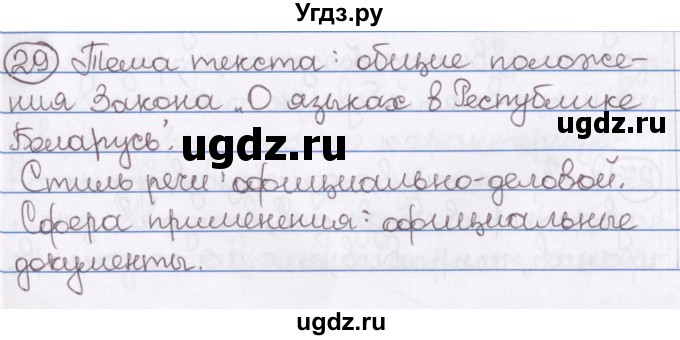 Угдз.ру
29 Тема текста: общие положе-
ния Закона „О языках в Республике
Беларусь".
Стиль речи: официально-деловой.
Сфера применения: официальные
документы.
©ugdz.ru
ugdz.ru
ugdz.ru